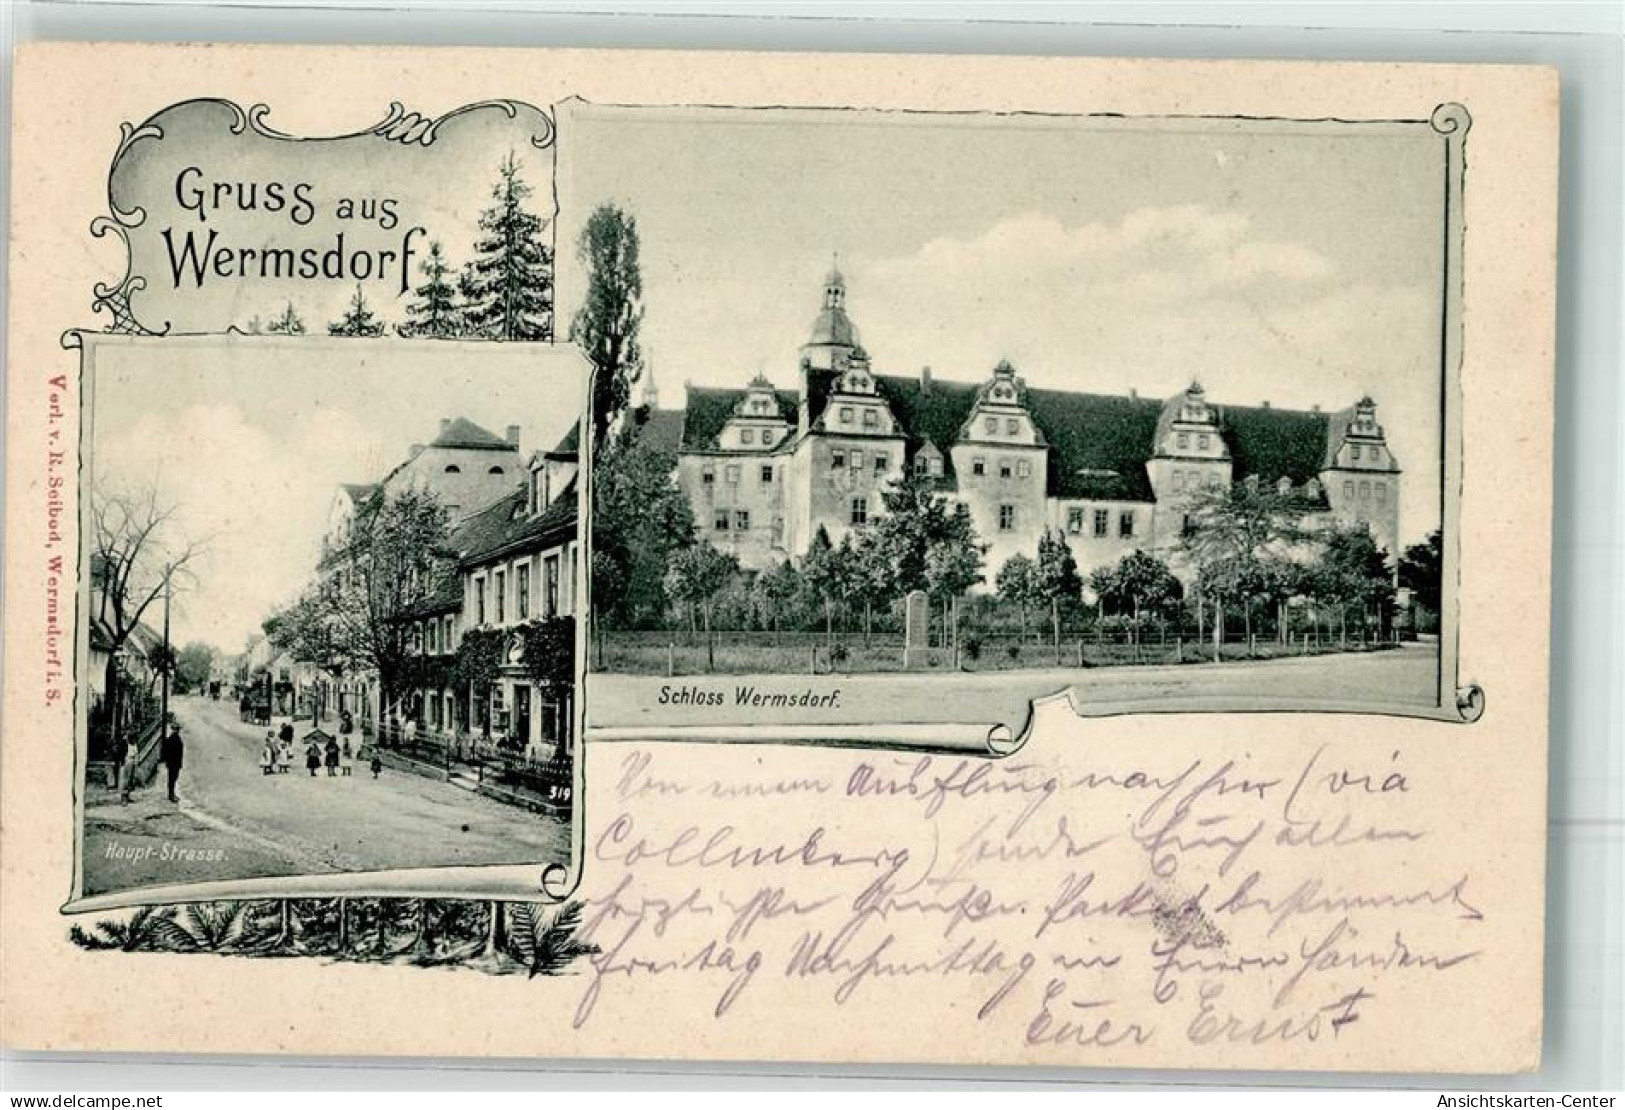 Gruss aus
Wermsdorf
Verl. v. R. Seibod, Wermsdorf i. S.
Schloss Wermsdorf.
319
Haupt-Strasse.
Von einem Ausflug nach hier (via
Collmberg) sende Euch allen
herzlichste Grüße. Packet bestimmt
Freitag Nachmittag in Euern Händen
Euer Ernst
delcampe.net
Ansichtskarten-Center